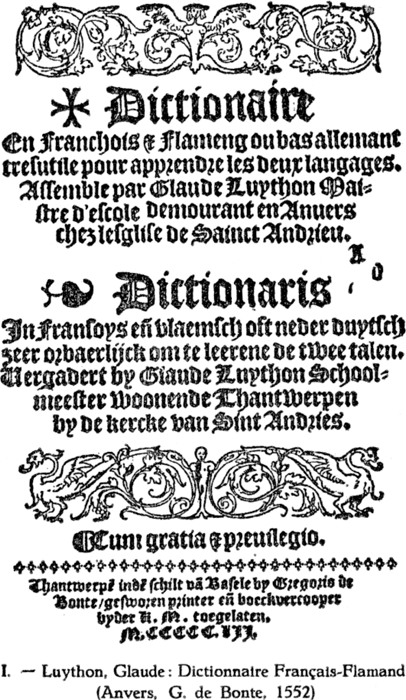 ✠ Dictionaire
En Franchois & Flameng ou bas allemant
tresutile pour apprendre les deux langages.
Assemble par Glaude Luython Mai=
stre d'escole demourant en Anuers
chez lesglise de Sainct Andrieu.
❧ Dictionaris
In Fransoys eñ vlaemsch oft neder duytsch
zeer orbaerlijck om te leerene de twee talen.
Vergadert by Glaude Luython School=
meester woonende Thantwerpen
by de kercke van Sint Andries.
Cum gratia & preuilegio.
Thantwerpē indē schilt vā Basele by Gregoris de
Bonte/gesworen printer eñ boeckvercooper
byder K. M. toegelaten.
I. — Luython, Glaude: Dictionnaire Français-Flamand
(Anvers, G. de Bonte, 1552)